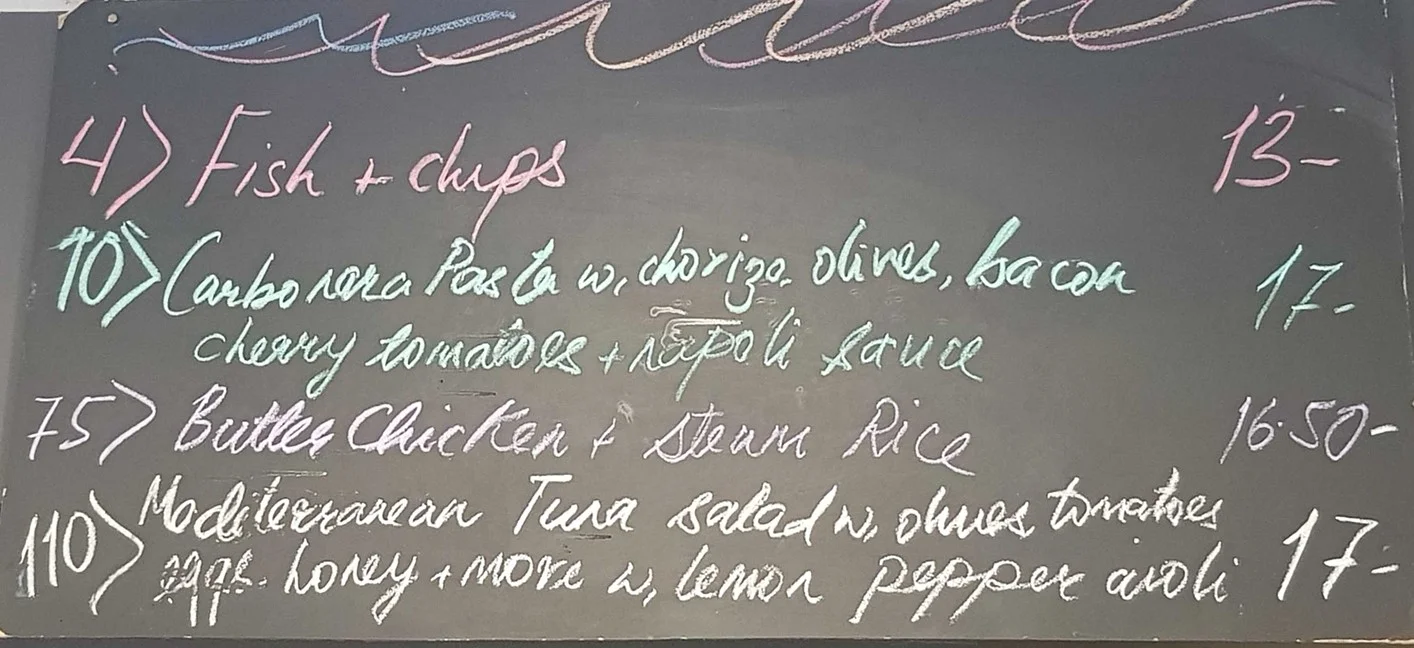 4) Fish + chips 13-
10) Carbonara Pasta w, chorizo, olives, bacon 17-
cherry tomatoes + napoli sauce
75) Butter Chicken + steam Rice 16.50-
110) Mediterranean Tuna salad w, olives tomatoes
eggs. honey + more w, lemon pepper aioli 17-